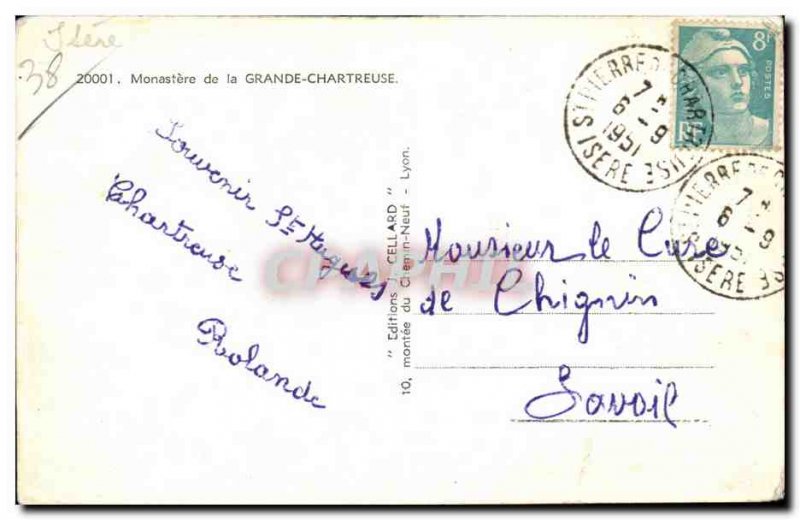 Isère
38
20001. Monastère de la GRANDE-CHARTREUSE.
Souvenir St Hugues
Chartreuse
Rolande
" Editions J. CELLARD "
10, montée du Chemin-Neuf - Lyon.
Monsieur le Curé
de Chignin
Savoie
8F
POSTES
RF
ST PIERRE DE CHARTREUSE
7 H
6 - 9
1951
ISERE
ST PIERRE DE CH
7 H
6 - 9
1951
ISERE
CPAPHIL